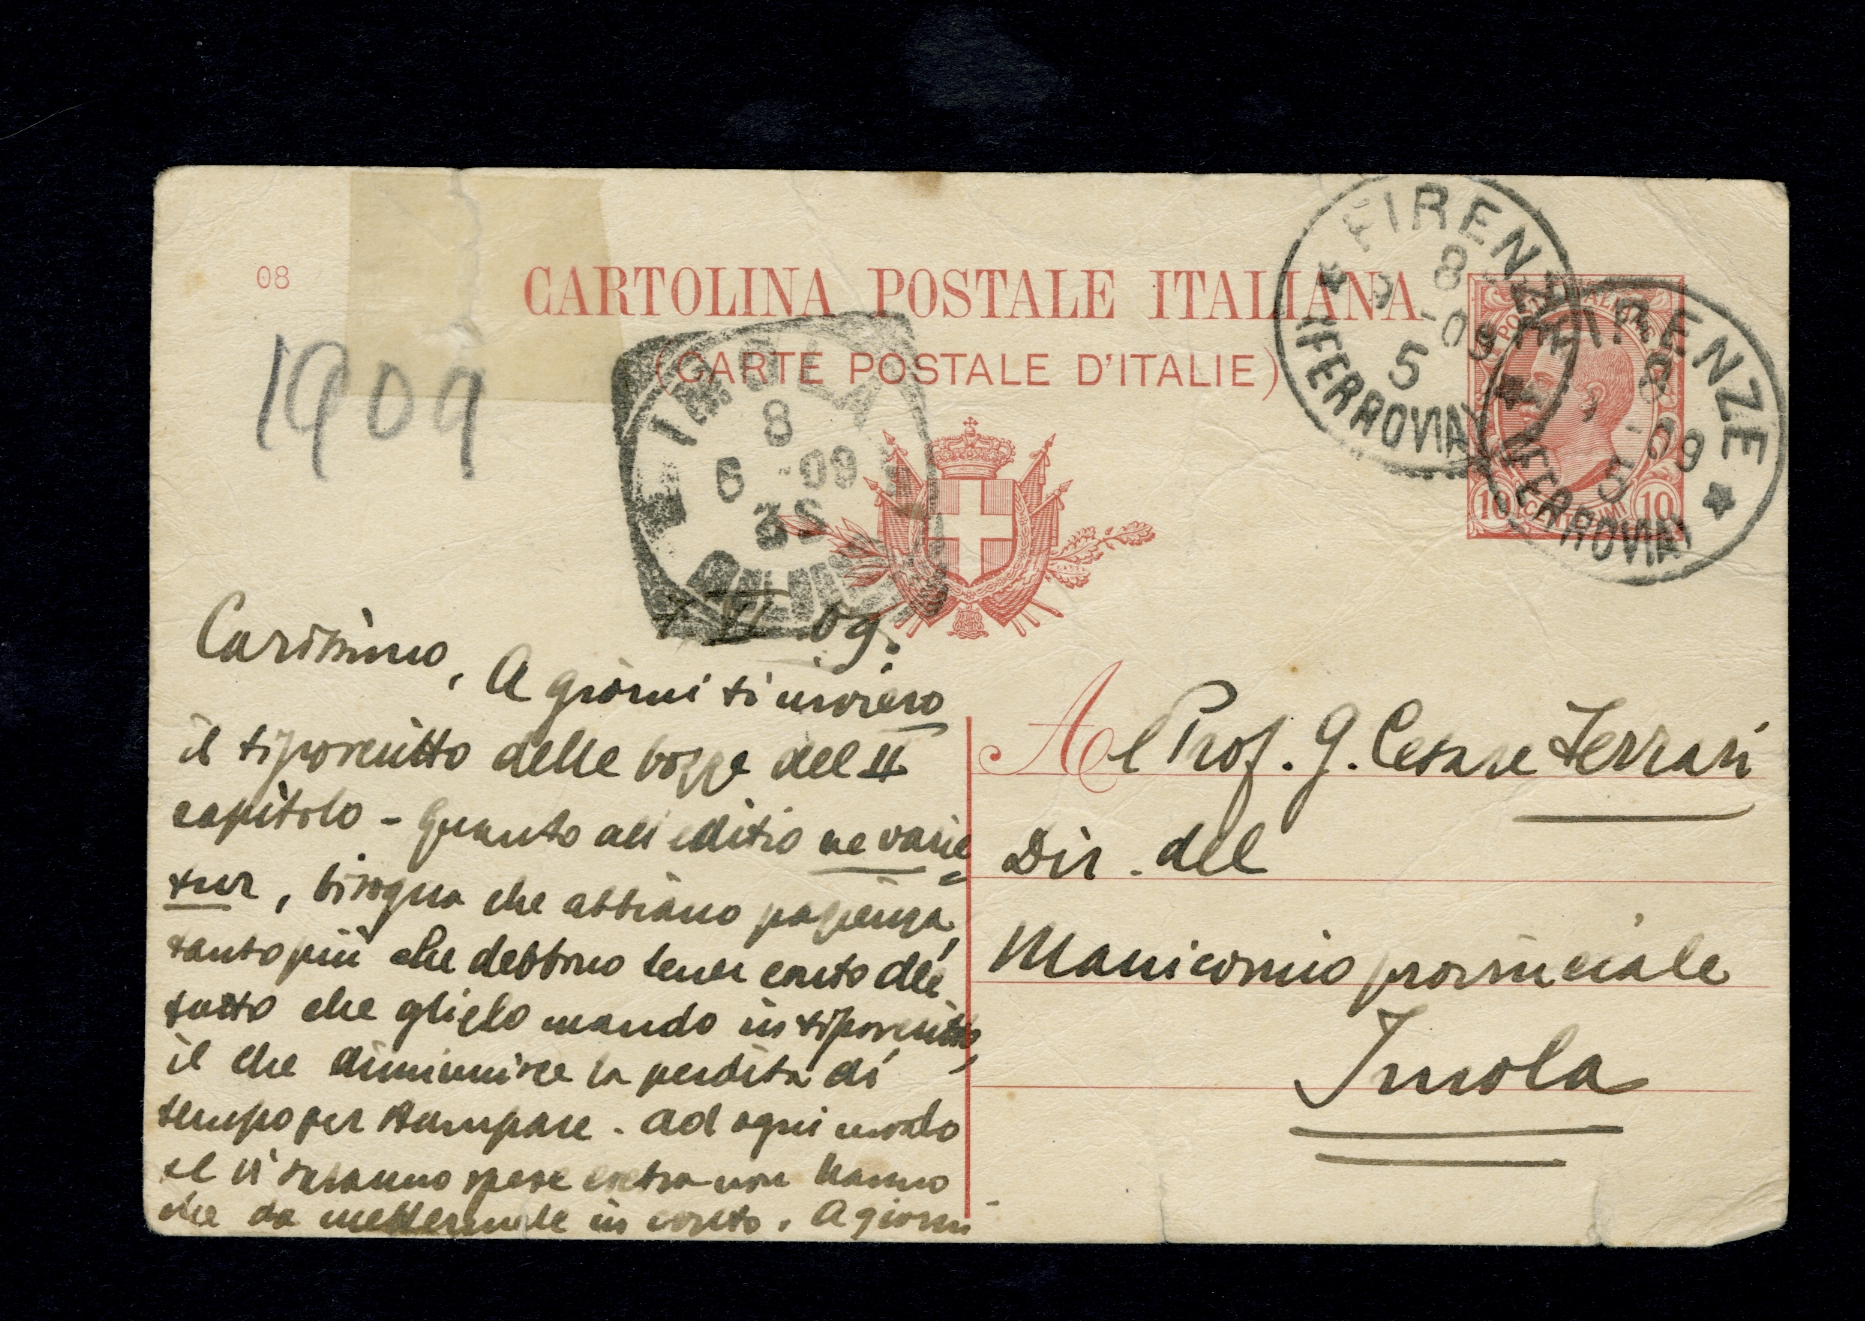 08
CARTOLINA POSTALE ITALIANA
(CARTE POSTALE D'ITALIE)
1909
IMOLA
8
6 -09
3S
FIRENZE
8
5 -09
(FERROVIA)
FIRENZE
8
5 -09
(FERROVIA)
10 CENTESIMI 10
VI 09.
Carissimo, A giorni ti invierò
il tiposcritto delle bozze del II
capitolo - Quanto all'editio ne varie
tur, bisogna che abbiamo pazienza,
tanto più che debbono tener conto del
fatto che glielo mando in tiposcritto,
il che diminuisce la perdita di
tempo per stampare. Ad ogni modo
se vi saranno spese extra non hanno
che da mettermele in conto. A giorni
Al Prof. G. Cesare Ferrari
Dir. del
Manicomio provinciale
Imola